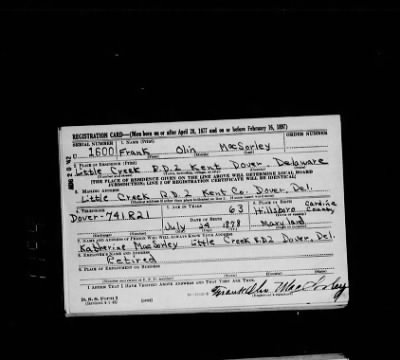 REGISTRATION CARD—(Men born on or after April 28, 1877 and on or before February 16, 1897)
SERIAL NUMBER 1. NAME (Print) ORDER NUMBER
U 1600 Frank Olin MacSorley
(First) (Middle) (Last)
2. PLACE OF RESIDENCE (Print)
Little Creek R.D.2 Kent Dover. Delaware
(THE PLACE OF RESIDENCE GIVEN ON THE LINE ABOVE WILL DETERMINE LOCAL BOARD
JURISDICTION; LINE 2 OF REGISTRATION CERTIFICATE WILL BE IDENTICAL)
3. MAILING ADDRESS
Little Creek R.D.2 Kent Co. Dover, Del.
4. TELEPHONE 5. AGE IN YEARS 6. PLACE OF BIRTH
Dover-741R21 63 Hillsboro Caroline County
DATE OF BIRTH
July 24 1878 Maryland
7. NAME AND ADDRESS OF PERSON WHO WILL ALWAYS KNOW YOUR ADDRESS
Katherine MacSorley Little Creek R.D.2 Dover, Del.
8. EMPLOYER'S NAME AND ADDRESS
Retired
9. PLACE OF EMPLOYMENT OR BUSINESS
I AFFIRM THAT I HAVE VERIFIED ABOVE ANSWERS AND THAT THEY ARE TRUE.
D. S. S. Form 1
Frank Olin MacSorley